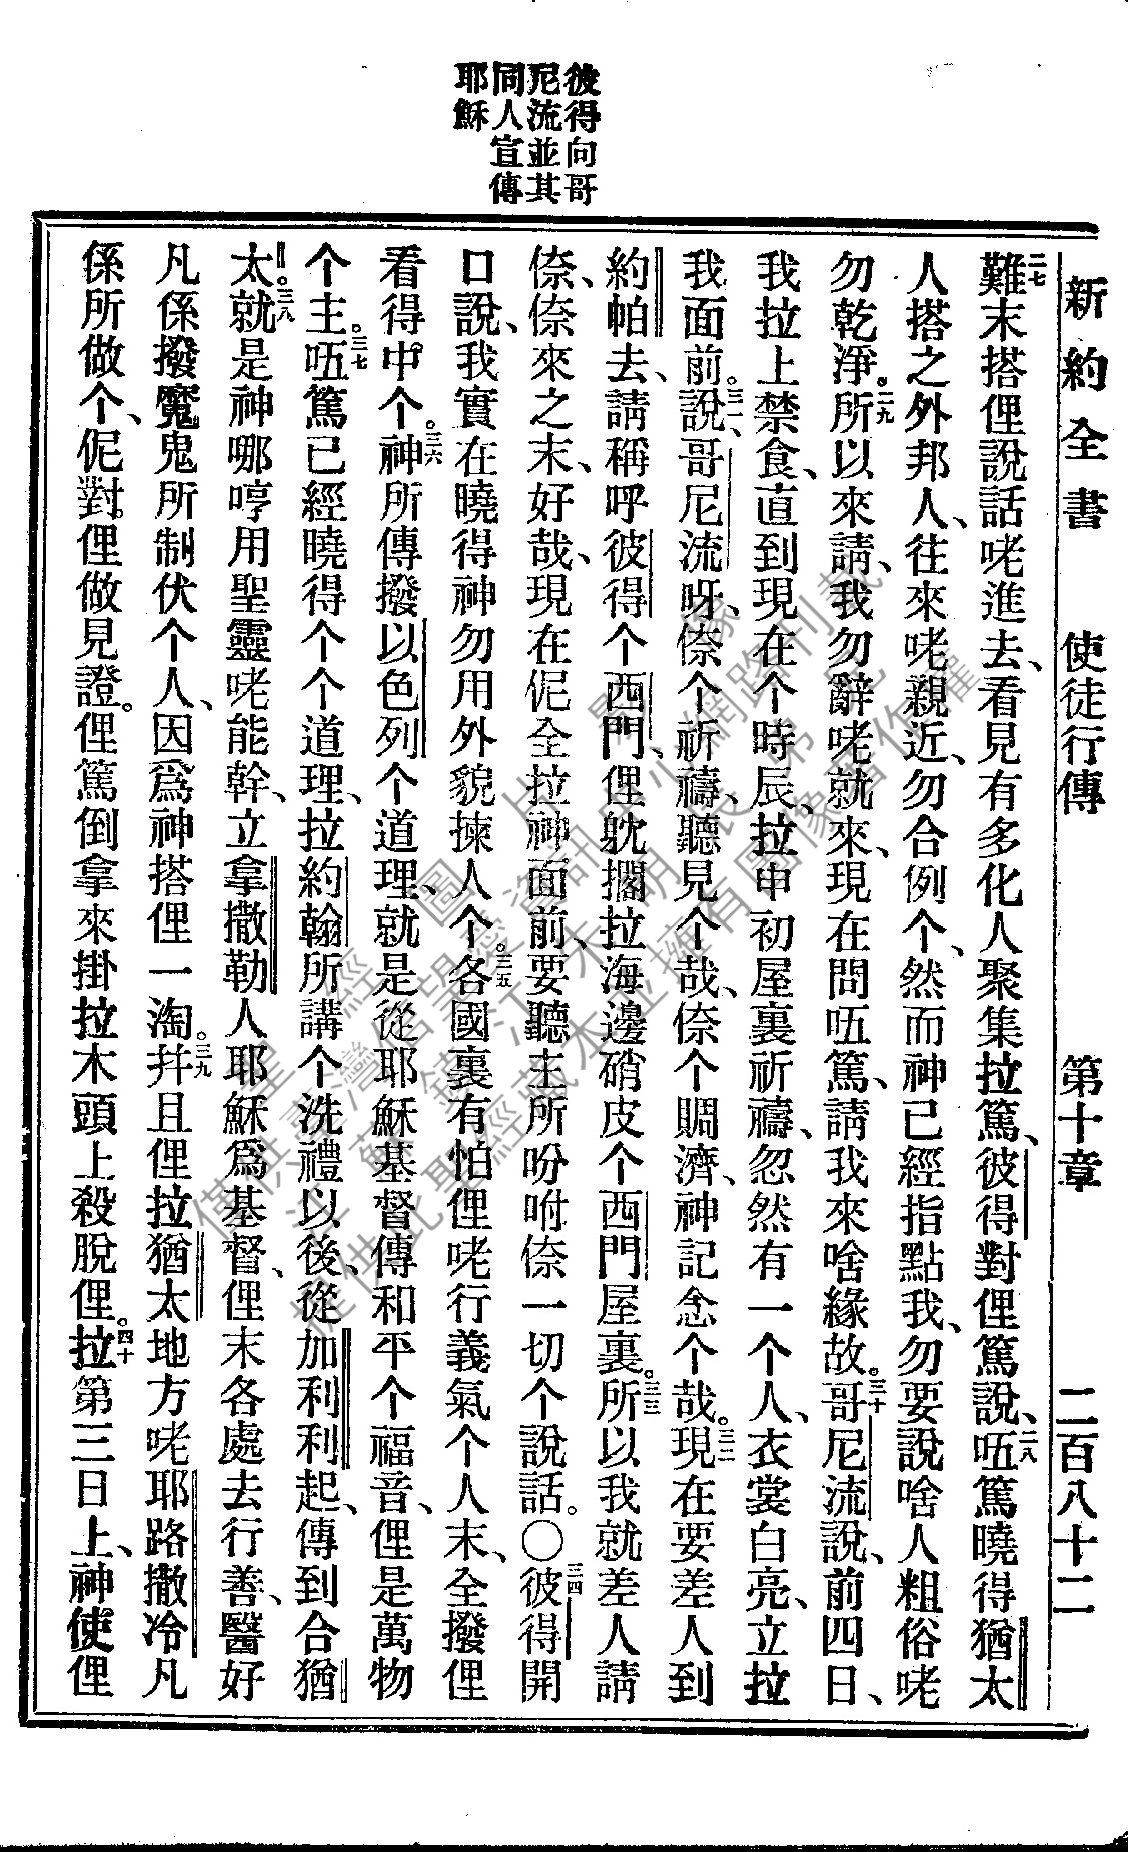 新約全書 使徒行傳 第十章 二百八十二
彼得向哥
尼流並其
同人宣傳
耶穌
二七難末搭俚說話咾進去、看見有多化人聚集拉篤、彼得對俚篤說、二八㕶篤曉得猶太
人搭之外邦人、往來咾親近、勿合例个、然而神已經指點我、勿要說啥人粗俗咾
勿乾淨。二九所以來請、我勿辭咾就來、現在問㕶篤、請我來啥緣故。三十哥尼流說、前四日、
我拉上禁食、直到現在个時辰、拉申初屋裏祈禱、忽然有一个人、衣裳白亮、立拉
我面前。三一說、哥尼流呀、倷个祈禱、聽見个哉、倷个賙濟、神記念个哉。三二現在要差人到
約帕去、請稱呼彼得个西門、俚躭擱拉海邊硝皮个西門屋裏。三三所以我就差人請
倷、倷來之末、好哉、現在伲全拉神面前、要聽主所吩咐倷一切个說話。〇三四彼得開
口說、我實在曉得神勿用外貌揀人个。三五各國裏有怕俚咾行義氣个人末、全撥俚
看得中个。三六神所傳撥以色列个道理、就是從耶穌基督傳和平个福音、俚是萬物
个主。三七㕶篤已經曉得个个道理、拉約翰所講个洗禮以後、從加利利起、傳到合猶
太。三八就是神哪哼用聖靈咾能幹、立拿撒勒人耶穌爲基督、俚末各處去行善、醫好
凡係撥魔鬼所制伏个人、因爲神搭俚一淘。三九幷且俚拉猶太地方咾耶路撒冷凡
係所做个、伲對俚做見證。俚篤倒拿來掛拉木頭上殺脫俚。四十拉第三日上、神使俚